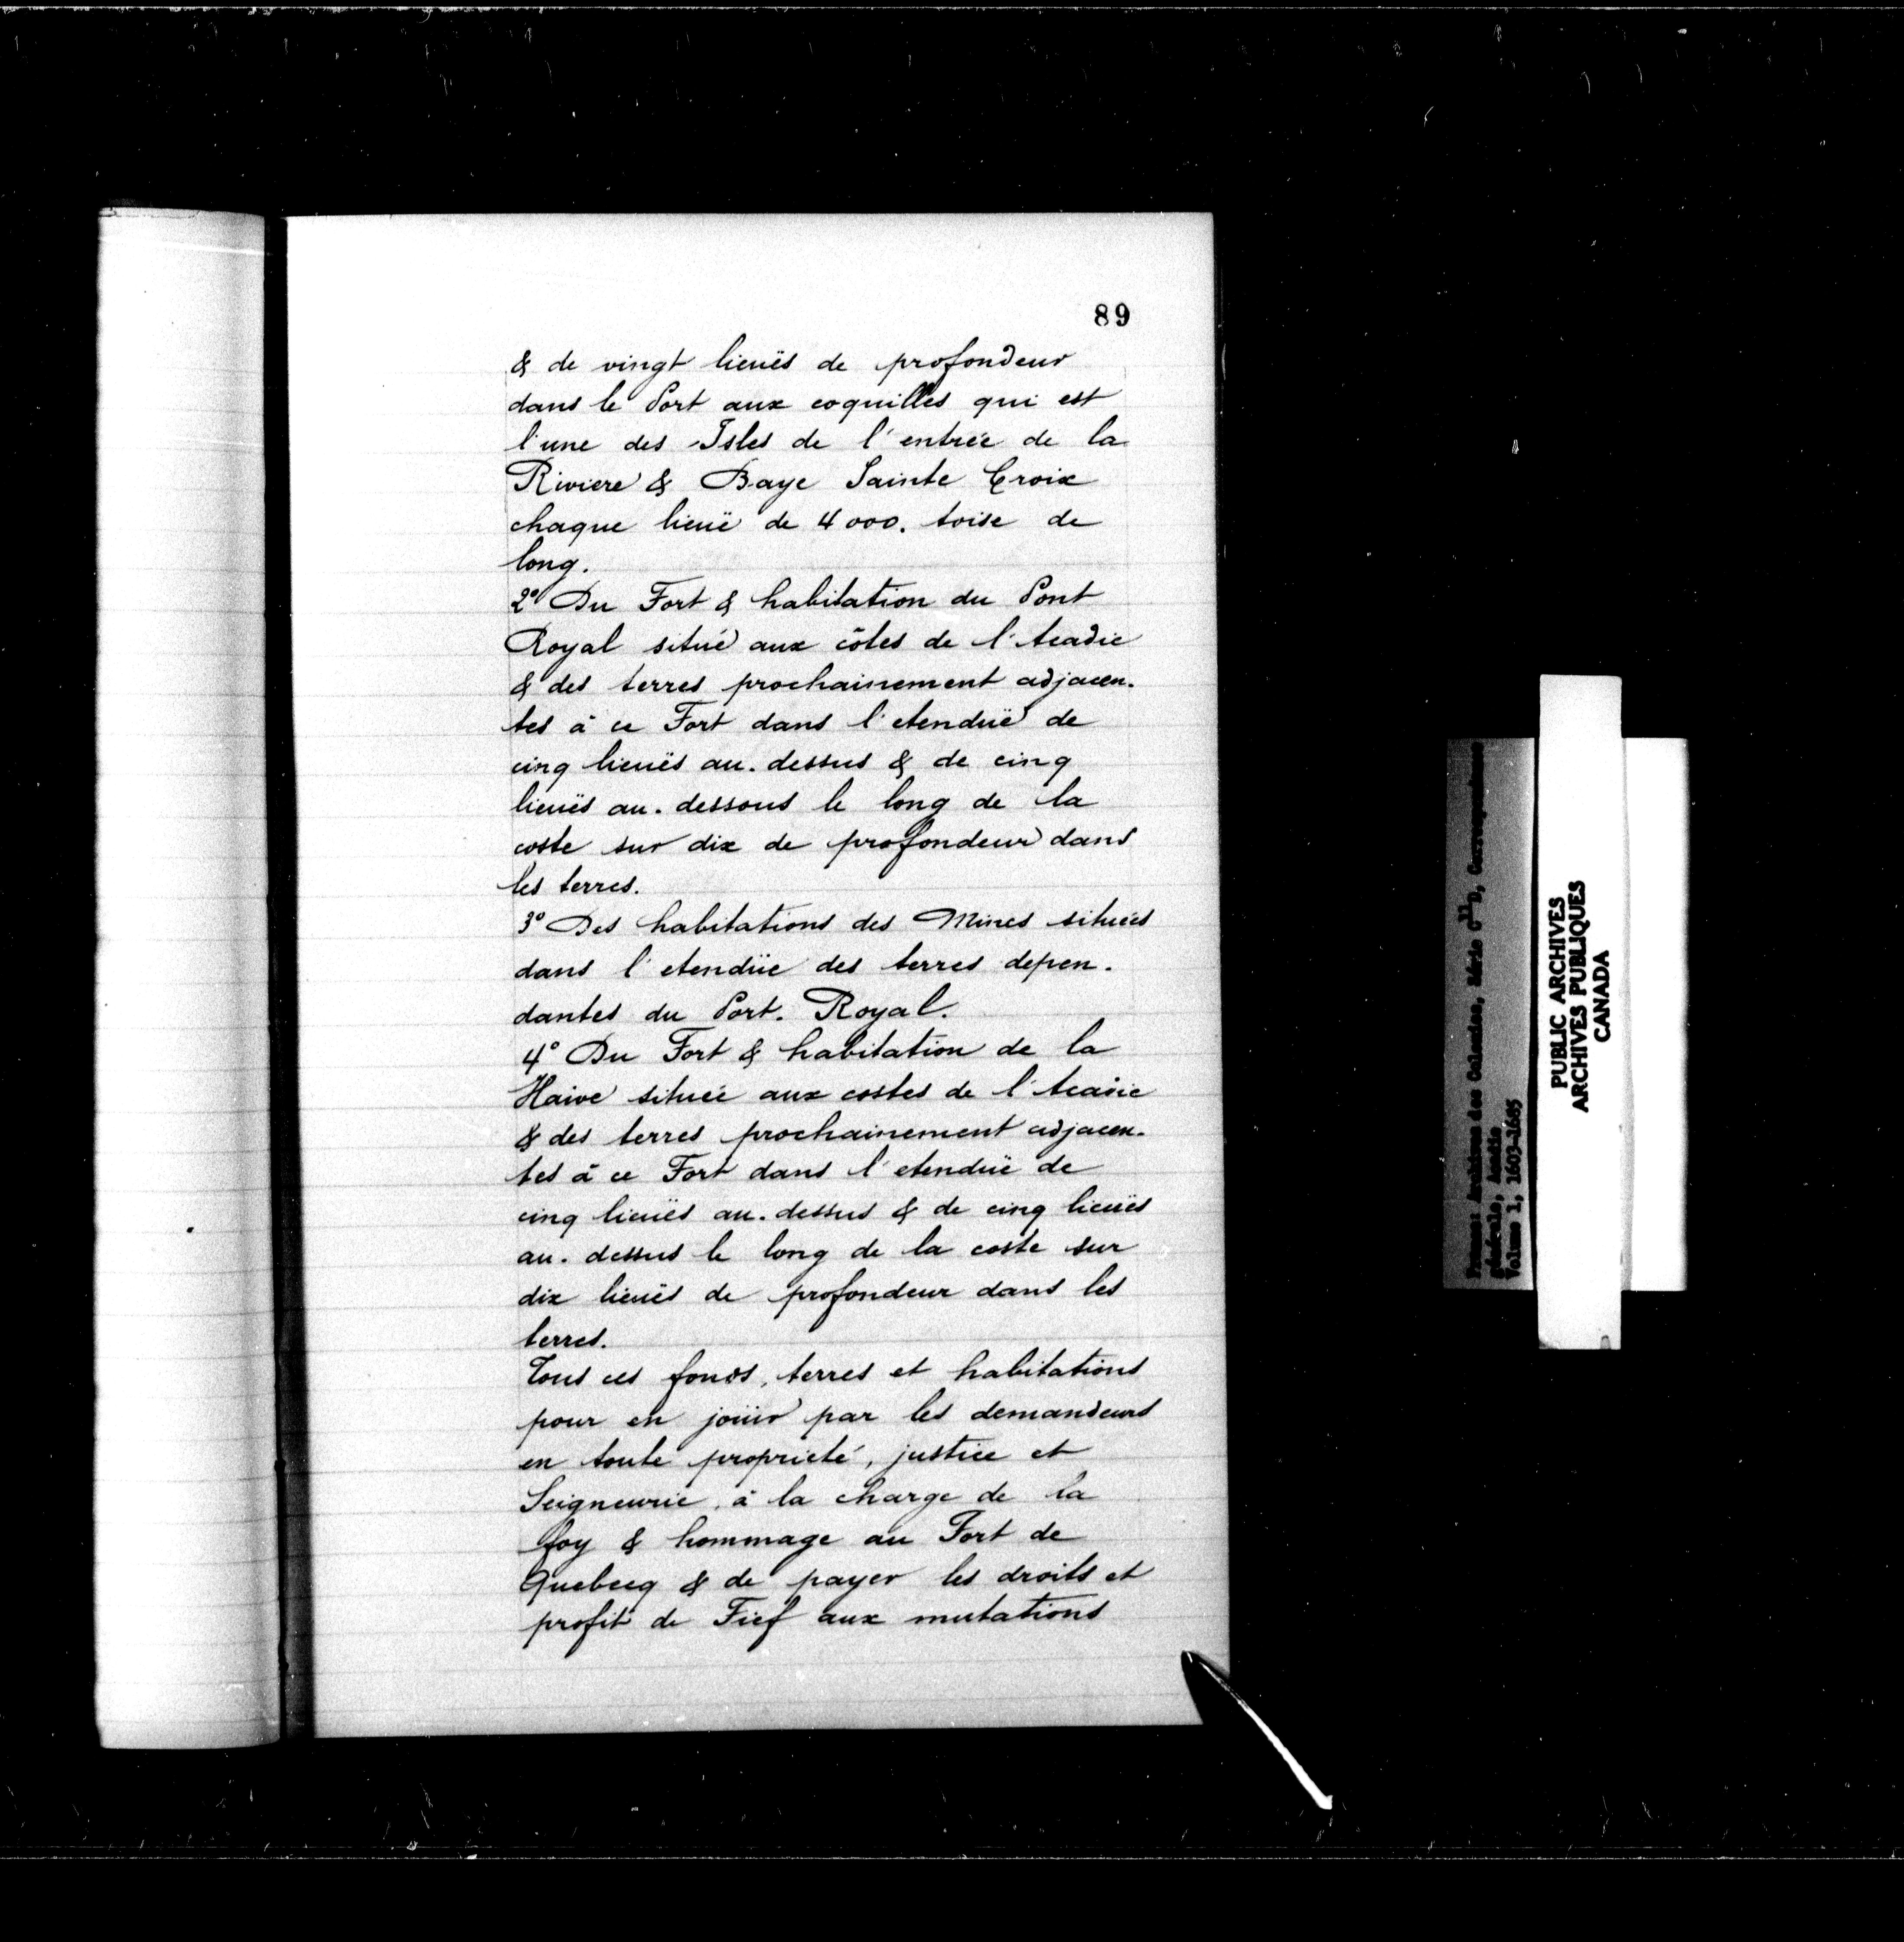 89
& de vingt lieuës de profondeur
dans le Port aux coquilles qui est
l'une des Isles de l'entrée de la
Riviere & Baye Sainte Croix
chaque lieuë de 4000. toise de
long.
2° Du Fort & habitation du Pont
Royal situé aux côtes de l'Acadie
& des terres prochainement adjacen.
tes à ce Fort dans l'etenduë de
cinq lieuës au. dessus & de cinq
lieuës au. dessous le long de la
coste sur dix de profondeur dans
les terres.
3° Des habitations des Mines situées
dans l'etenduë des terres depen.
dantes du Port. Royal.
4° Du Fort & habitation de la
Haive située aux costes de l'Acadie
& des terres prochainement adjacen.
tes à ce Fort dans l'etenduë de
cinq lieuës au. dessus & de cinq lieuës
au. dessus le long de la coste sur
dix lieuës de profondeur dans les
terres.
Tous ces fonds, terres et habitations
pour en joüir par les demandeurs
en toute proprieté, justice et
Seigneurie, à la charge de la
foy & hommage au Fort de
Quebecq & de payer les droits et
profit de Fief aux mutations
PUBLIC ARCHIVES
ARCHIVES PUBLIQUES
CANADA
France: Archives des Colonies, Série C11D, Correspondance
générale, Acadie
Volume 1, 1603-1685